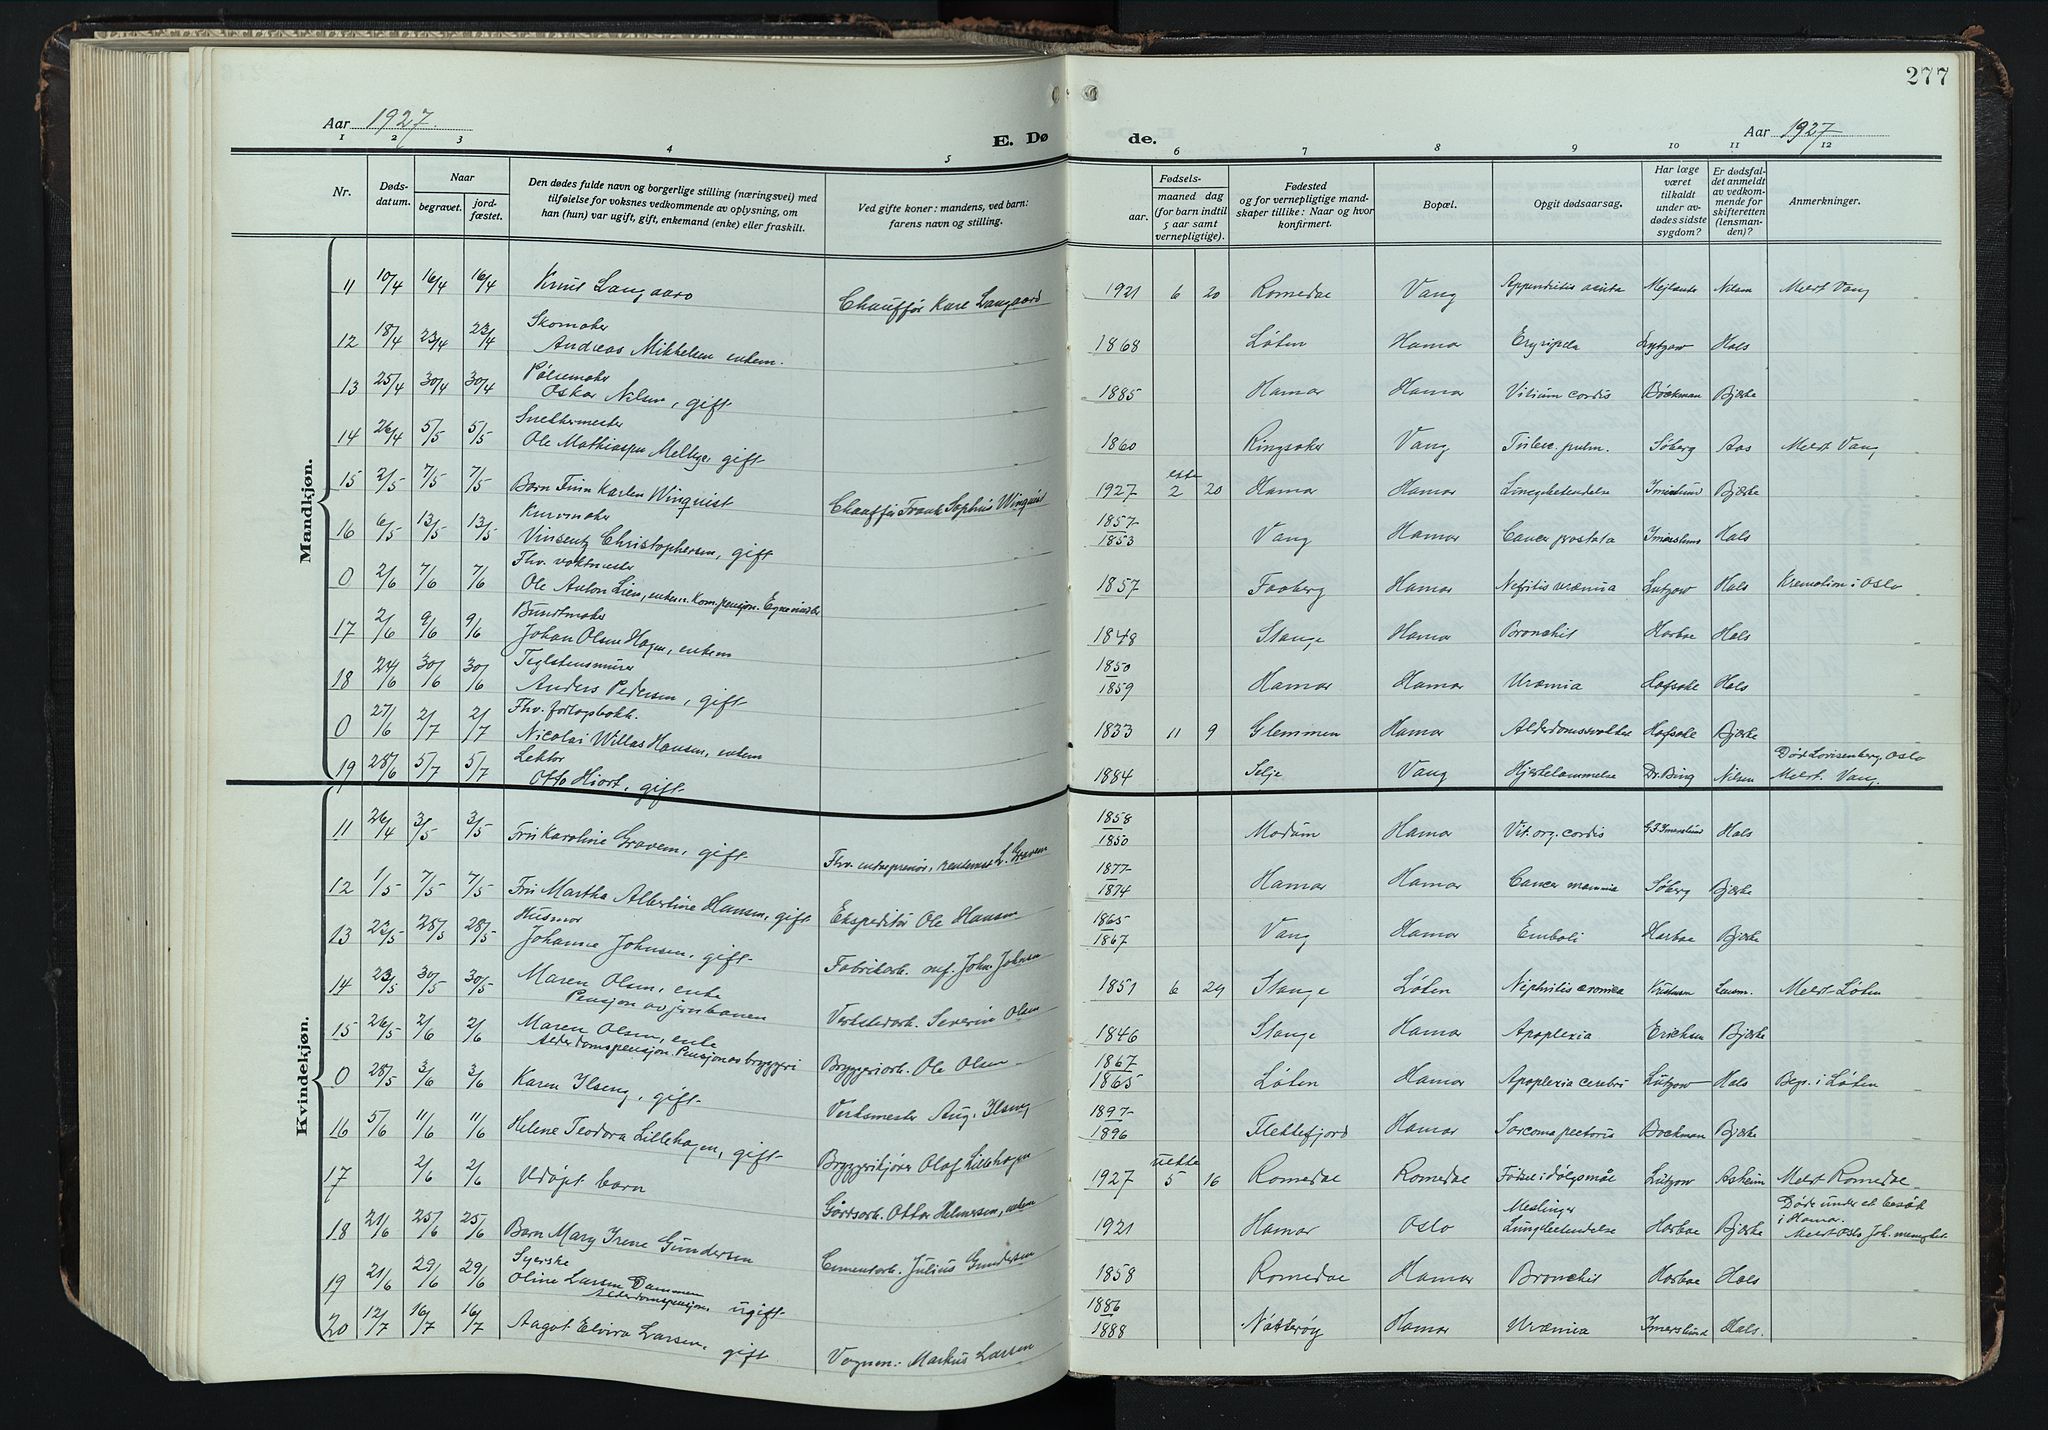 277
Aar 1927.
E. Døde.
Aar 1927
1 2 3 4 5 6 7 8 9 10 11 12
Nr.
Døds-
datum.
Naar
begravet.
jord-
fæstet.
Den dødes fulde navn og borgerlige stilling (næringsvei) med
tilføielse for voksnes vedkommende av oplysning, om
han (hun) var ugift, gift, enkemand (enke) eller fraskilt.
Ved gifte koner: mandens, ved barn:
farens navn og stilling.
Fødsels-
aar.
maaned dag
(for barn indtil
5 aar samt
vernepligtige).
Fødested
og for vernepligtige mand-
skaper tillike: Naar og hvor
konfirmert.
Bopæl.
Opgit dødsaarsag.
Har læge
været
tilkaldt
under av-
dødes sidste
sygdom?
Er dødsfal-
det anmeldt
av vedkom-
mende for
skifteretten
(lensman-
den)?
Anmerkninger.
Mandkjøn.
11 10/4 16/4 16/4 Knut Langaard Chauffør Karl Langaard 1921 6 20 Romedae Vang Appendisitis acuta Nilsen Meldt Vang
Skomaker
12 18/4 23/4 23/4 Andreas Mikkelsen enkem. 1868 Løten Hamar Erysipela Lützow Hals
Pølsemaker
13 25/4 30/4 30/4 Oskar Nilsen, gift 1885 Hamar Hamar Vitium cordis Böckman Bjerke
Snekkermester
14 26/4 5/5 5/5 Ole Mathiassen Melbye, gift 1860 Ringsaker Vang Tuberc. pulm. Søberg Aas Meldt Vang
15 2/5 7/5 7/5 Barn Finn Karlen Winquist Chauffør Frank Sophus Winquist 1927 ekte 2 20 Hamar Hamar Lungebetendelse Imerslund Bjerke
Kurvmaker
16 6/5 13/5 13/5 Vinsents Christophersen, gift 1857/1853 Vang Hamar Cancer prostata Imerslund Hals
Fhv. voktmester
0 2/6 7/6 7/6 Ole Anton Lien, enkem. Kom. pensjon. 1857 Faaberg Hamar Nefritis uræmia Lützow Hals Kremation i Oslo
Buntmaker
17 2/6 9/6 9/6 Johan Olsen Hagen, enkem 1848 Stange Hamar Bronchit Harboe Hals
Teglstensmurer
18 24/6 30/6 30/6 Anders Pedersen, gift 1850/1859 Hamar Hamar Uræmia Hofsake Hals
Fhv. forlagsbokh.
0 27/6 2/7 2/7 Nicolai Willas Hansen, enkem 1833 11 9 Glemmen Hamar Alderdomssvakhet Hofsake Bjerke
Lektor Død Lovisenberg, Oslo
19 28/6 5/7 5/7 Otto Hiort, gift 1884 Selje Vang Hjertelammelse Dr. Bing Nilsen Meldt Vang.
Kvindekjøn.
11 26/4 3/5 3/5 Fru Karoline Gravem, gift Fhv. entreprenør, rentenist L. Gravem 1858/1850 Modum Hamar Vit. org. cordis G F Imerslund Hals
12 1/5 7/5 7/5 Fru Martha Albertine Hansen, gift Ekspeditør Ole Hansen 1877/1874 Hamar Hamar Cancer mamma Søberg Bjerke
Husmor
13 22/5 28/5 28/5 Johanne Johnsen, gift Fabrikarb. Johan Johnsen 1865/1867 Vang Hamar Emboli Harboe Bjerke
14 23/5 30/5 30/5 Maren Olsen, enke Verkstedarb. Severin Olsen 1851 6 29 Stange Løten Nephritis cronica Kristiansen Lensm. Meldt Løten
Pensjon av jernbanen
15 26/5 2/6 2/6 Maren Olsen, enke Bryggeriarb. Ole Olsen 1846 Stange Hamar Apoplexia Ericksen Bjerke
Alderdomspensjon. Pensjon av bryggeri
0 28/5 3/6 3/6 Karen Ilseng, gift Verksmester Aug. Ilseng 1867/1865 Løten Hamar Apoplexia cerebri Lützow Hals Begr. i Løten
16 5/6 11/6 11/6 Helene Teodora Lillehagen, gift Bryggerikjører Olaf Lillehagen 1897/1896 Flekkefjord Hamar Sarcoma pectoris Bockman Bjerke
17 2/6 2/6 Udøpt barn Gårdsarb. Ottar Helmersen, enkem 1927 uekte 5 16 Romedae Romedae Fødsel i dølgsmål Lützow Asheim Meldt Romedae
18 21/6 25/6 25/6 Barn Mary Irene Gundersen Cementarb. Julius Gundersen 1921 Hamar Oslo Meslinger Lungebetendelse Harboe Bjerke Døde under et besøk i Hamar. Meldt Oslo Joh. menighet.
Syerske
19 21/6 29/6 29/6 Oline Larsen Dammen ugift 1858 Romedae Hamar Bronchit Harboe Hals
Alderdomspensjon.
20 12/7 16/7 16/7 Aagot Elvira Larsen, gift Vognm. Markus Larsen 1886/1888 Nøtterøy Hamar Uræmia Imerslund Hals.